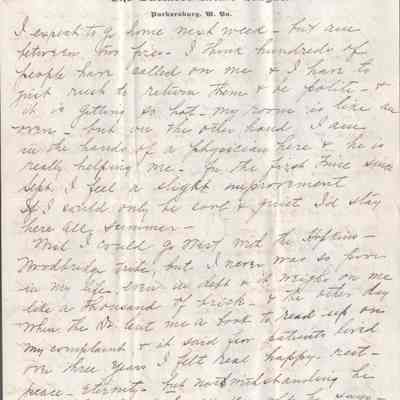 Parkersburg, W. Va.
I expect to go home next week - but am
between two fires - I think hundreds of
people have called on me & I have to
just rush to return them & be polite - &
it is getting so hot - my room is like an
oven - but on the other hand I am
in the hands of a physician here & he is
really helping me - for the first time since
Sept. I feel a slight improvement
If I could only be cool & quiet I'd stay
here all summer -
Wish I could go West with the Hopkins -
Woodbridge tribe, but I never was so poor
in my life - even in debt & it weighs on me
like a thousand of brick - & the other day
when the Dr. lent me a book to read up on
my complaint & it said few patients lived
over three years I felt real happy - rest -
peace - eternity - but notwithstanding he